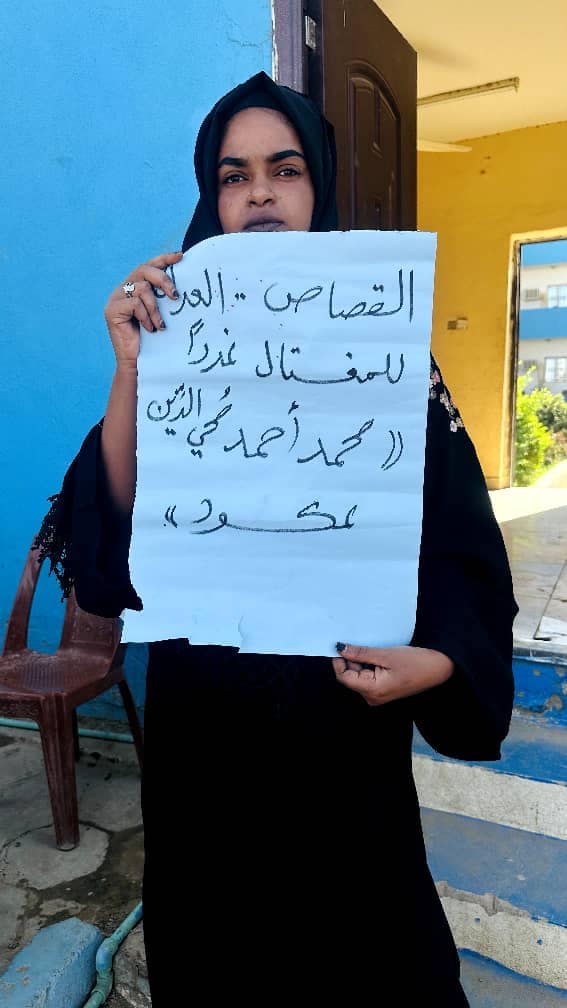 القصاص .. العدالة
للمغتال غدراً
(( محمد أحمد مُحي الدّين
عكود ))